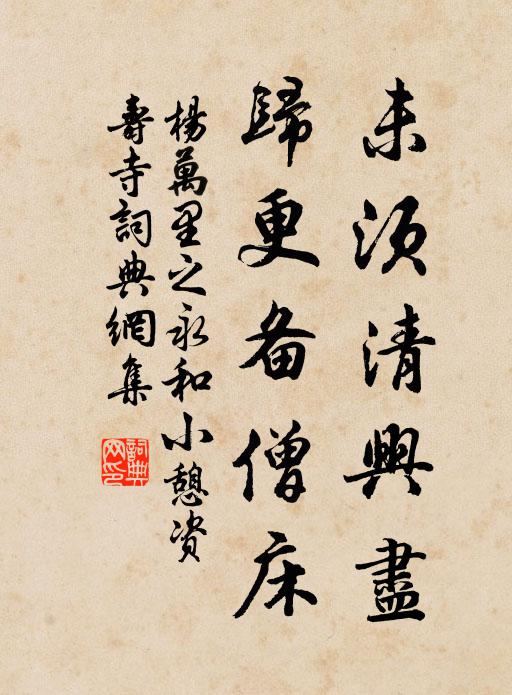 未須清興盡
歸更备僧床
楊萬里之永和小憩资
壽寺詞典網集
詞典
网印